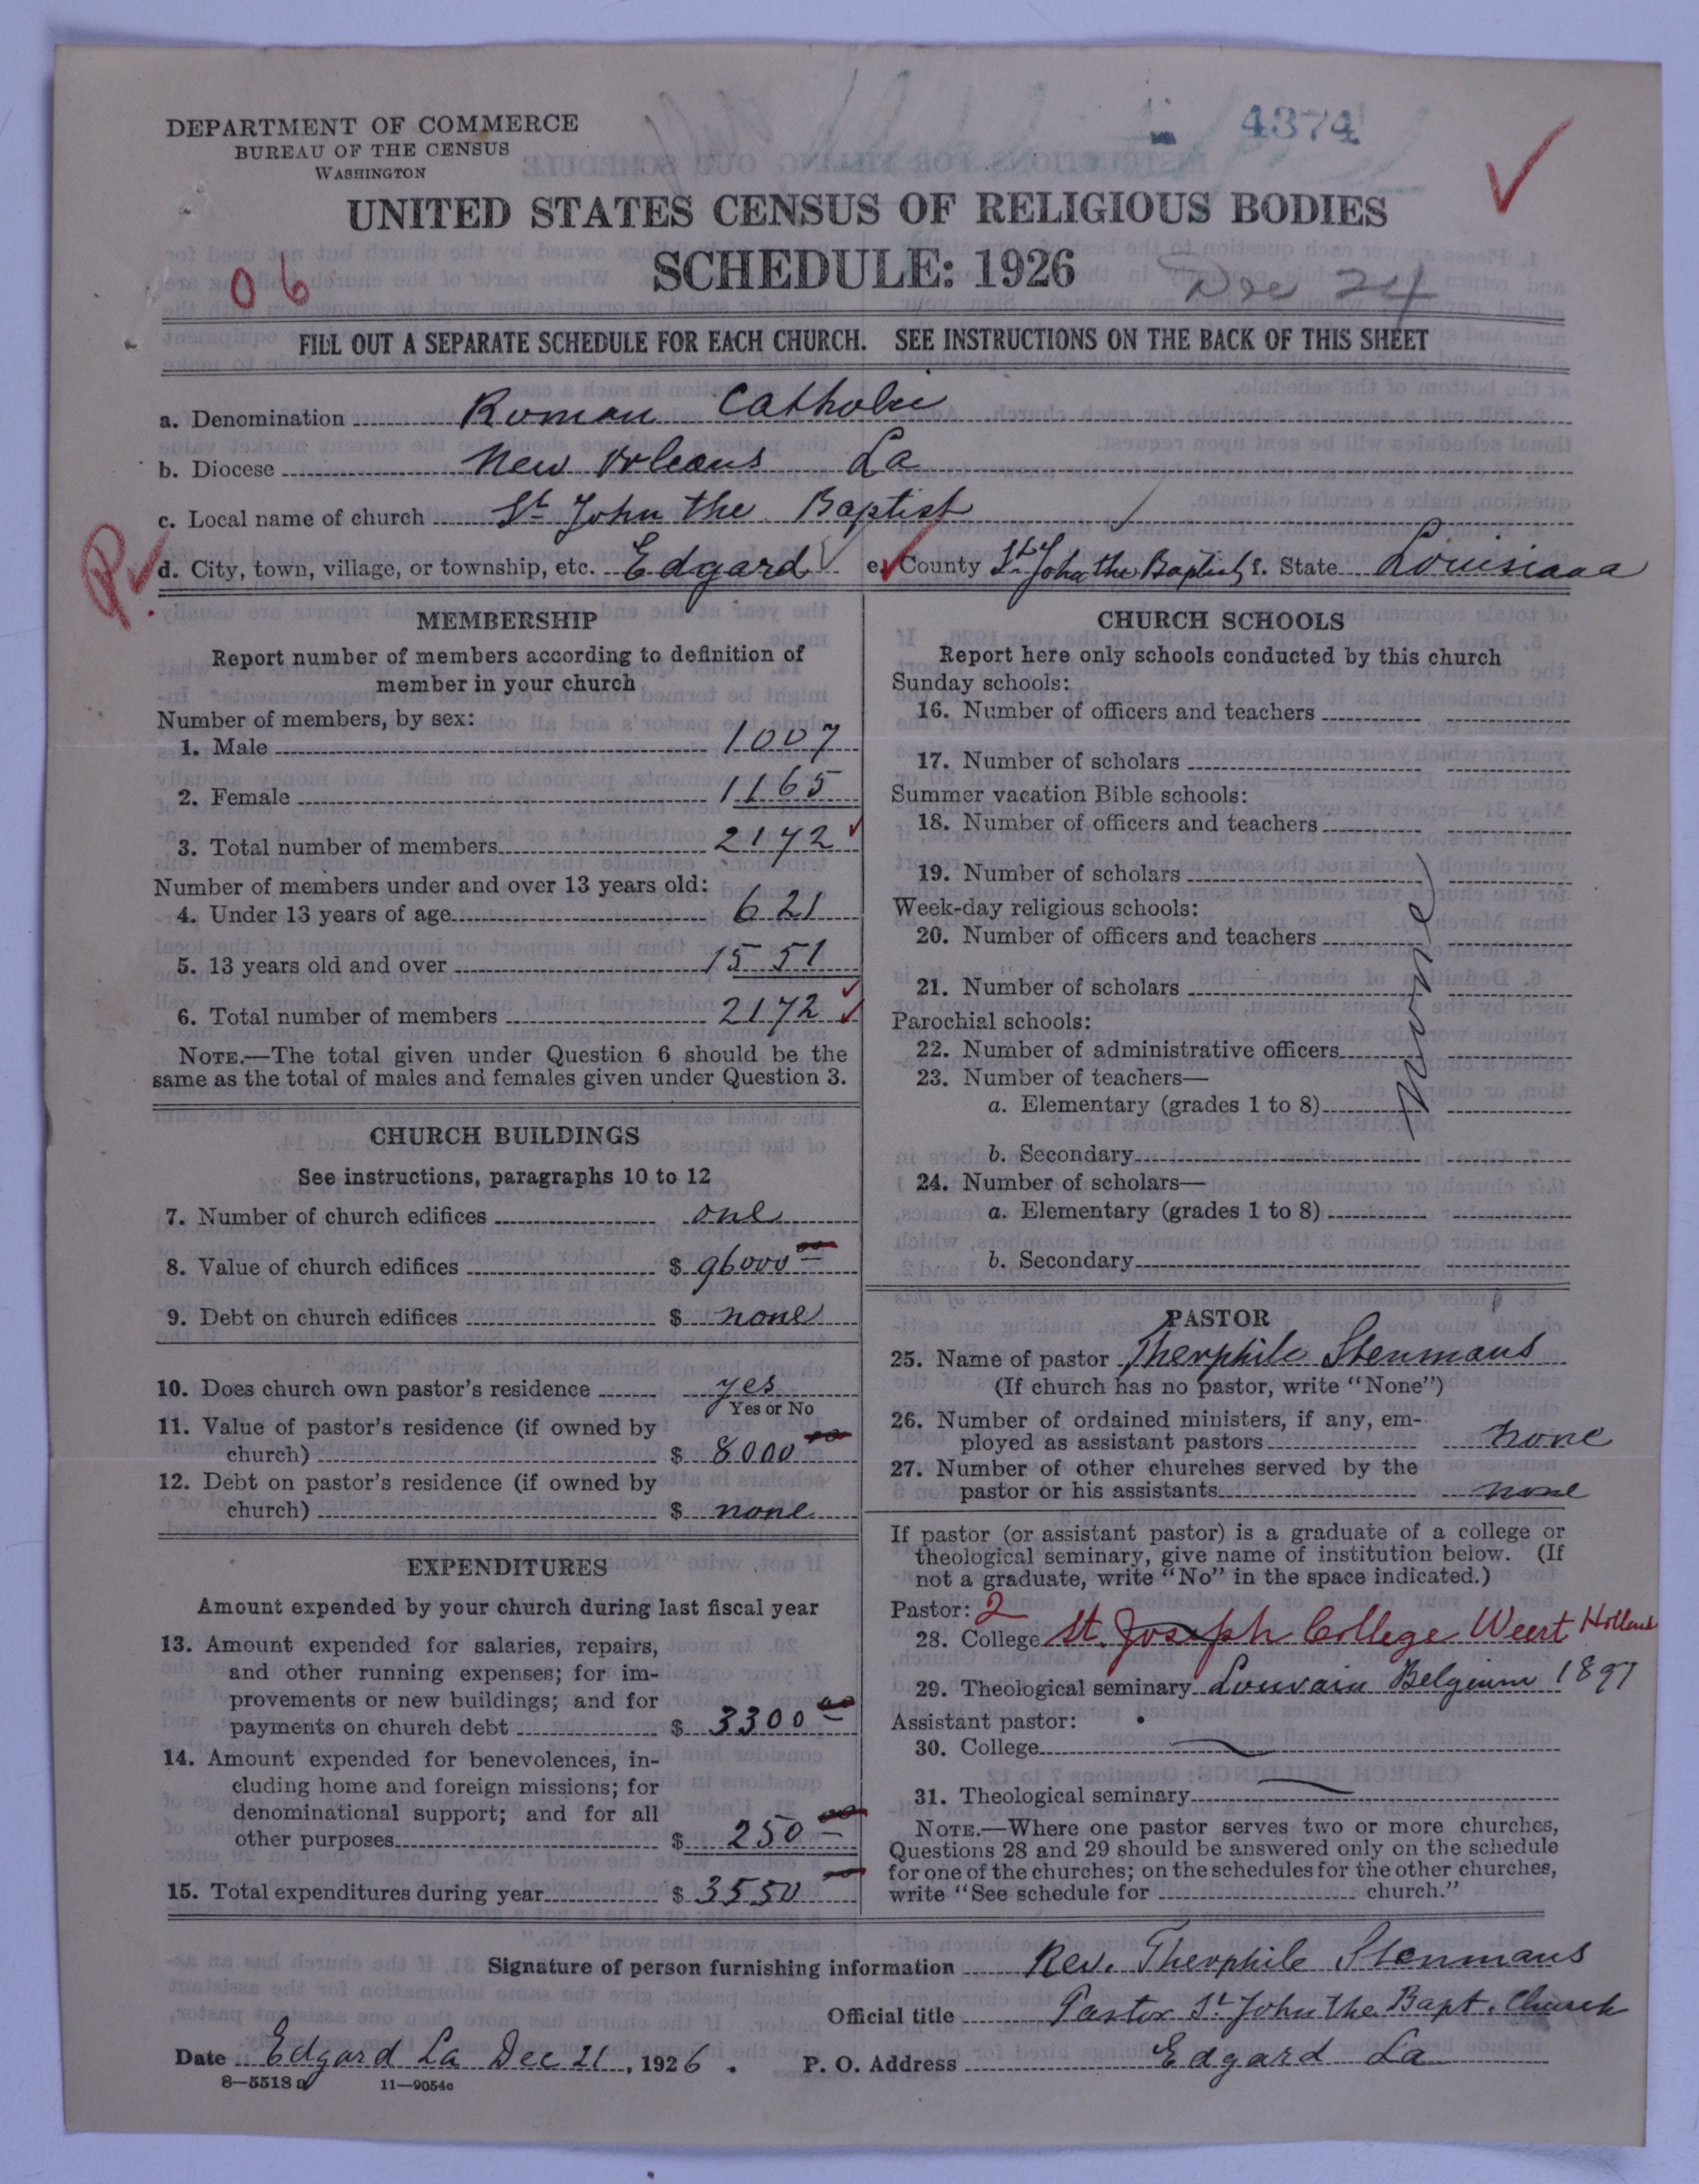 4374
DEPARTMENT OF COMMERCE
BUREAU OF THE CENSUS
WASHINGTON
UNITED STATES CENSUS OF RELIGIOUS BODIES
SCHEDULE: 1926
Dec 24
06
FILL OUT A SEPARATE SCHEDULE FOR EACH CHURCH. SEE INSTRUCTIONS ON THE BACK OF THIS SHEET
a. Denomination Roman Catholic
b. Diocese New Orleans La
c. Local name of church St John the Baptist
d. City, town, village, or township, etc. Edgard e. County St. John the Baptist f. State Louisiana
MEMBERSHIP
Report number of members according to definition of
member in your church
Number of members, by sex:
1. Male 1007
2. Female 1165
3. Total number of members 2172
Number of members under and over 13 years old:
4. Under 13 years of age 621
5. 13 years old and over 1551
6. Total number of members 2172
NOTE.—The total given under Question 6 should be the
same as the total of males and females given under Question 3.
CHURCH BUILDINGS
See instructions, paragraphs 10 to 12
7. Number of church edifices one
8. Value of church edifices $ 96000 00
9. Debt on church edifices $ none
10. Does church own pastor's residence yes
Yes or No
11. Value of pastor's residence (if owned by
church) $ 8000 00
12. Debt on pastor's residence (if owned by
church) $ none
EXPENDITURES
Amount expended by your church during last fiscal year
13. Amount expended for salaries, repairs,
and other running expenses; for im-
provements or new buildings; and for
payments on church debt $ 3300 00
14. Amount expended for benevolences, in-
cluding home and foreign missions; for
denominational support; and for all
other purposes $ 250 00
15. Total expenditures during year $ 3550
CHURCH SCHOOLS
Report here only schools conducted by this church
Sunday schools:
16. Number of officers and teachers
17. Number of scholars
Summer vacation Bible schools:
18. Number of officers and teachers
19. Number of scholars
Week-day religious schools:
20. Number of officers and teachers
21. Number of scholars
Parochial schools:
22. Number of administrative officers
23. Number of teachers—
a. Elementary (grades 1 to 8)
b. Secondary
24. Number of scholars—
a. Elementary (grades 1 to 8)
b. Secondary
None
PASTOR
25. Name of pastor Theophile Stenmans
(If church has no pastor, write "None")
26. Number of ordained ministers, if any, em-
ployed as assistant pastors none
27. Number of other churches served by the
pastor or his assistants none
If pastor (or assistant pastor) is a graduate of a college or
theological seminary, give name of institution below. (If
not a graduate, write "No" in the space indicated.)
Pastor: 2
28. College St. Joseph College Weert Holland
29. Theological seminary Louvain Belgium 1897
Assistant pastor:
30. College
31. Theological seminary
NOTE.—Where one pastor serves two or more churches,
Questions 28 and 29 should be answered only on the schedule
for one of the churches; on the schedules for the other churches,
write "See schedule for church."
Signature of person furnishing information Rev. Theophile Stenmans
Official title Pastor St John the Bapt. Church
Date Edgard La Dec 21, 1926. P. O. Address Edgard La
8—5518 a 11—9054c